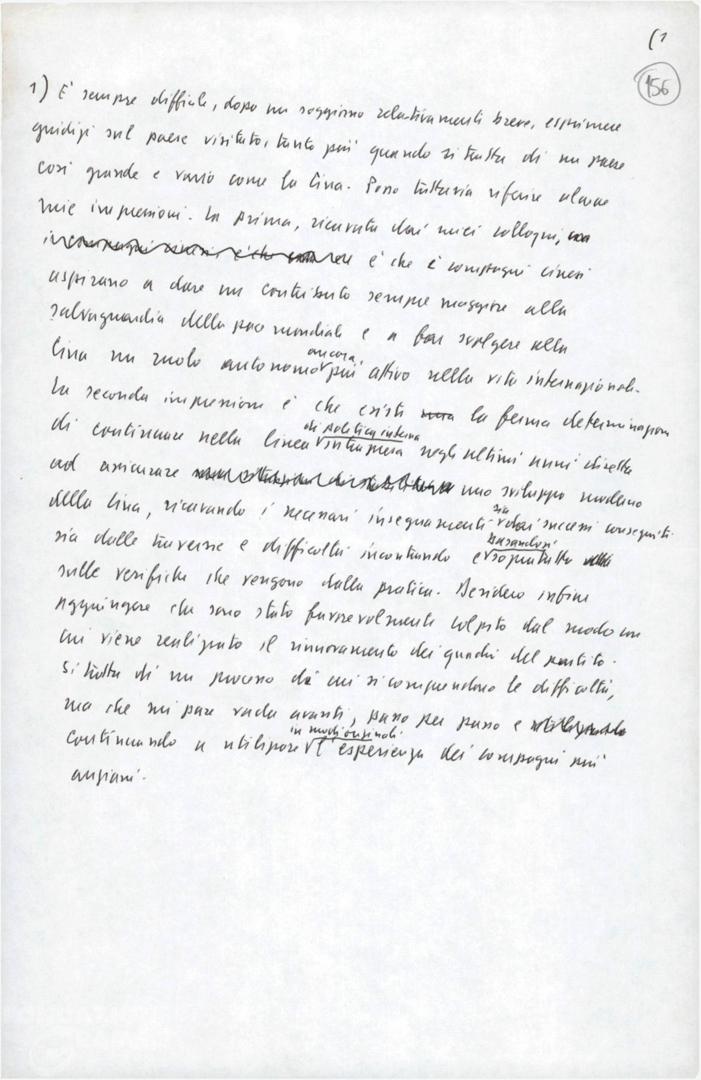 (1
156
1) È sempre difficile, dopo un soggiorno relativamente breve, esprimere
giudizi sul paese visitato, tanto più quando si tratta di un paese
così grande e vario come la Cina. Posso tuttavia riferire alcune
mie impressioni. La prima, ricavata dai miei colloqui,
è che i compagni cinesi
aspirano a dare un contributo sempre maggiore alla
salvaguardia della pace mondiale e a far svolgere alla
ancora
Cina un ruolo autonomo più attivo nella vita internazionale.
La seconda impressione è che esiste la ferma determinazione
di politica interna
di continuare nella linea intrapresa negli ultimi anni diretta
ad assicurare uno sviluppo moderno
sia
della Cina, ricavando i necessari insegnamenti dai successi conseguiti
basandosi
sia dalle traversie e difficoltà incontrando e sopratutto
sulle verifiche che vengono dalla pratica. Desidero infine
aggiungere che sono stato favorevolmente colpito dal modo con
cui viene realizzato il rinnovamento dei quadri del partito.
Si tratta di un processo di cui si comprendono le difficoltà,
ma che mi pare vada avanti, passo per passo e
in modi originali
continuando a utilizzare l'esperienza dei compagni più
anziani.